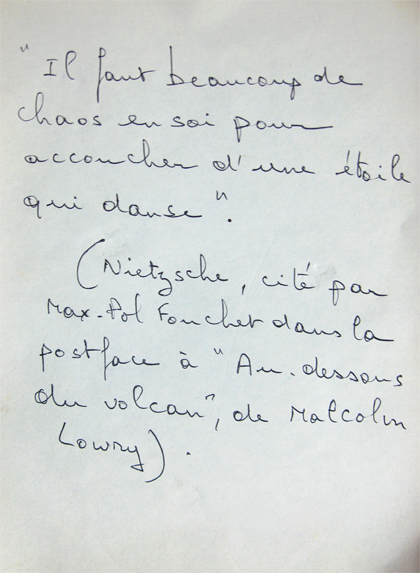 "Il faut beaucoup de
chaos en soi pour
accoucher d'une étoile
qui danse".
(Nietzsche, cité par
Max-Pol Fouchet dans la
postface à "Au-dessous
du volcan", de Malcolm
Lowry).